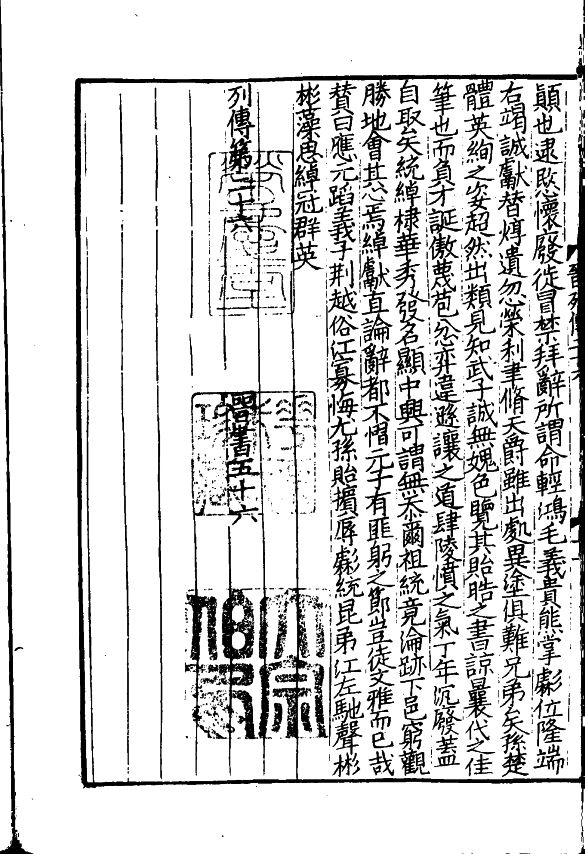 顛也逮愍懷廢徙冒禁拜辭所謂命輕鴻毛義貴熊掌虨位隆端
右竭誠獻替惇遺忽榮利聿脩天爵雖出處異塗俱難兄弟矣孫楚
體英絢之姿超然出類見知武子誠無媿色覽其貽晧之書諒曩代之佳
筆也而負才誕傲蔑苞忿奕違遜讓之道肆陵憤之氣丁年沉廢蓋
自取矣統綽棣華秀發名顯中興可謂無忝爾祖統竟淪跡下邑窮觀
勝地會其心焉綽獻直論辭都不慴元子有匪躬之節豈徒文雅而已哉
贊曰應元蹈義子荆越俗江寡悔尤孫貽擯辱虨統昆弟江左馳聲彬
彬藻思綽冠群英
列傳第二十六
晉書五十六